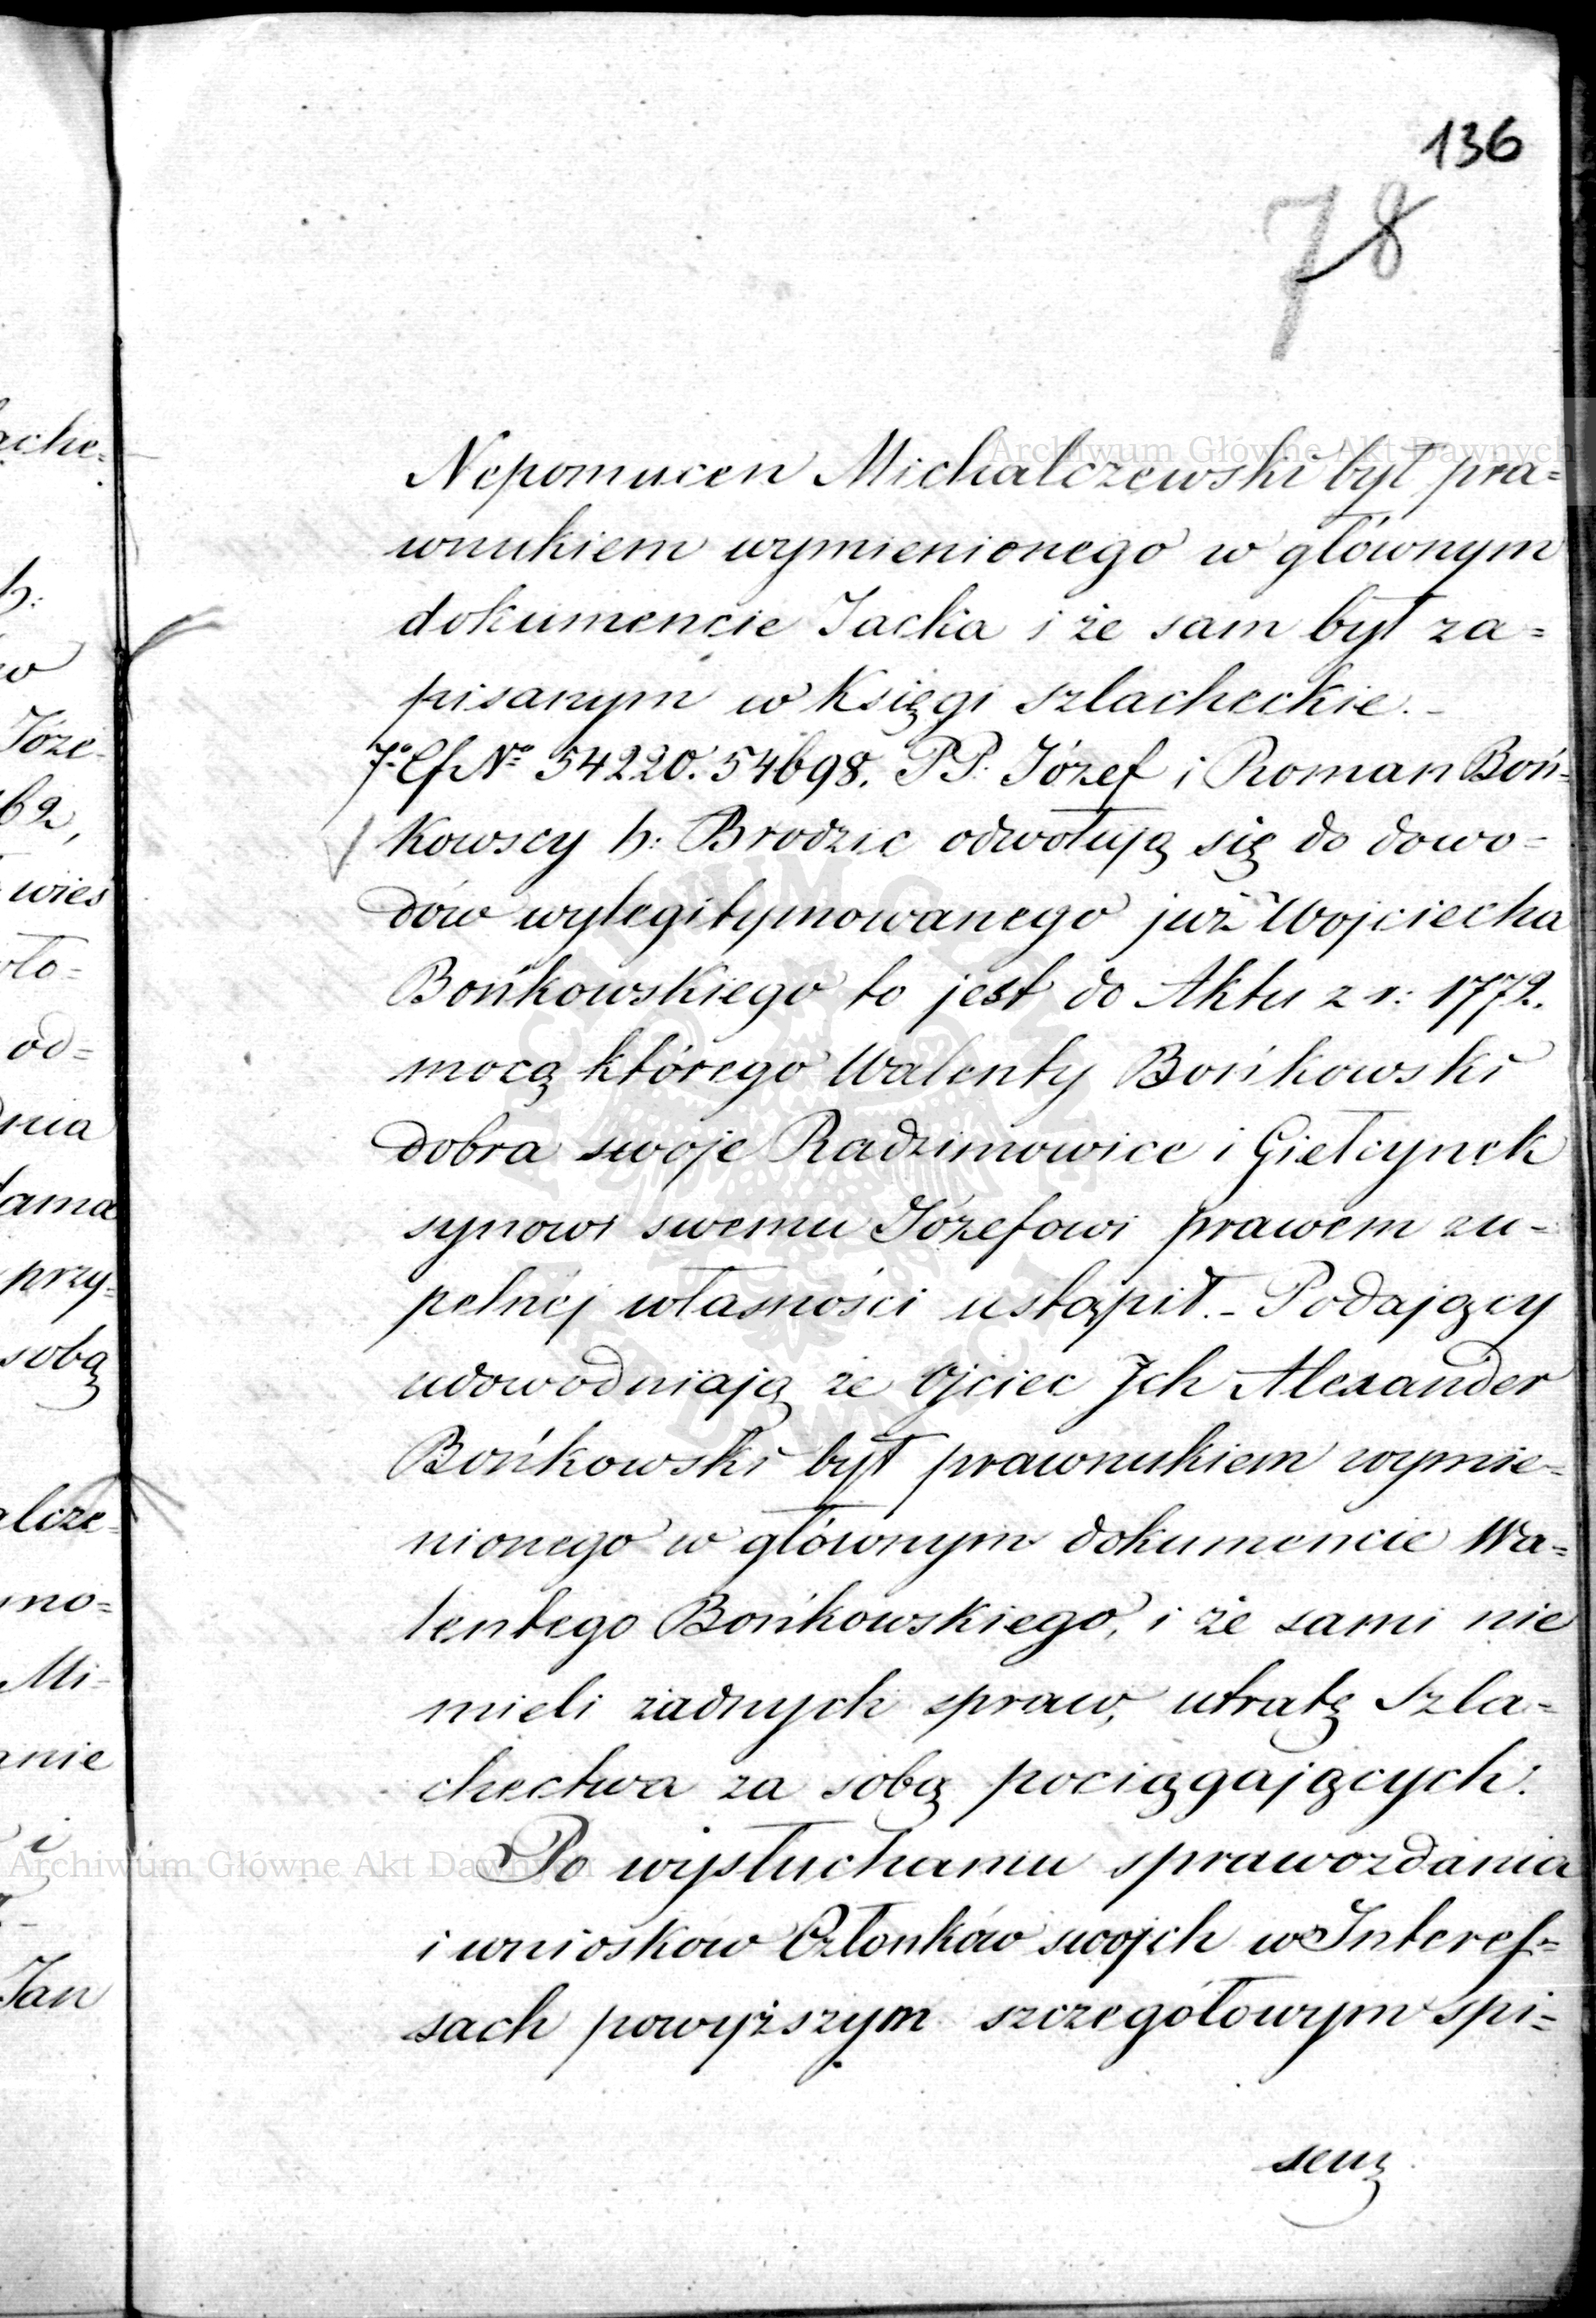 136
78
Nepomucen Michalczewski był pra=
wnukiem wymienionego w głównym
dokumencie Jacka i że sam był za=
pisanym w Księgi szlacheckie._
7º Ef Nº 54220. 54698. PP. Józef i Roman Boń=
kowscy h: Brodzic odwołują się do dowo=
dów wylegitymowanego już Wojciecha
Bońkowskiego to jest do Aktu z r: 1772.
mocą którego Walenty Bońkowski
dobra swoje Radzimowice i Giełcynek
synowi swemu Józefowi prawem zu=
pełnéj własności ustąpił._ Podający
udowodniają że Ojciec Ich Alexander
Bońkowski był prawnukiem wymie=
nionego w głównym dokumencie Wa=
lentego Bońkowskiego, i że sami nie
mieli żadnych spraw, utratę Szla=
chectwa za sobą pociągających.
Po wysłuchaniu sprawozdania
i wniosków Członków swojch w Interes=
sach powyższym szczegółowym spi=
sem
ache=
h:
w
Józe=
62,
wieś
ło=
od=
dnia
dama
przy=
sobą
alcze=
mo=
Mi=
anie
i
Jan
Archiwum Główne Akt Dawnych
Archiwum Główne Akt Dawnych